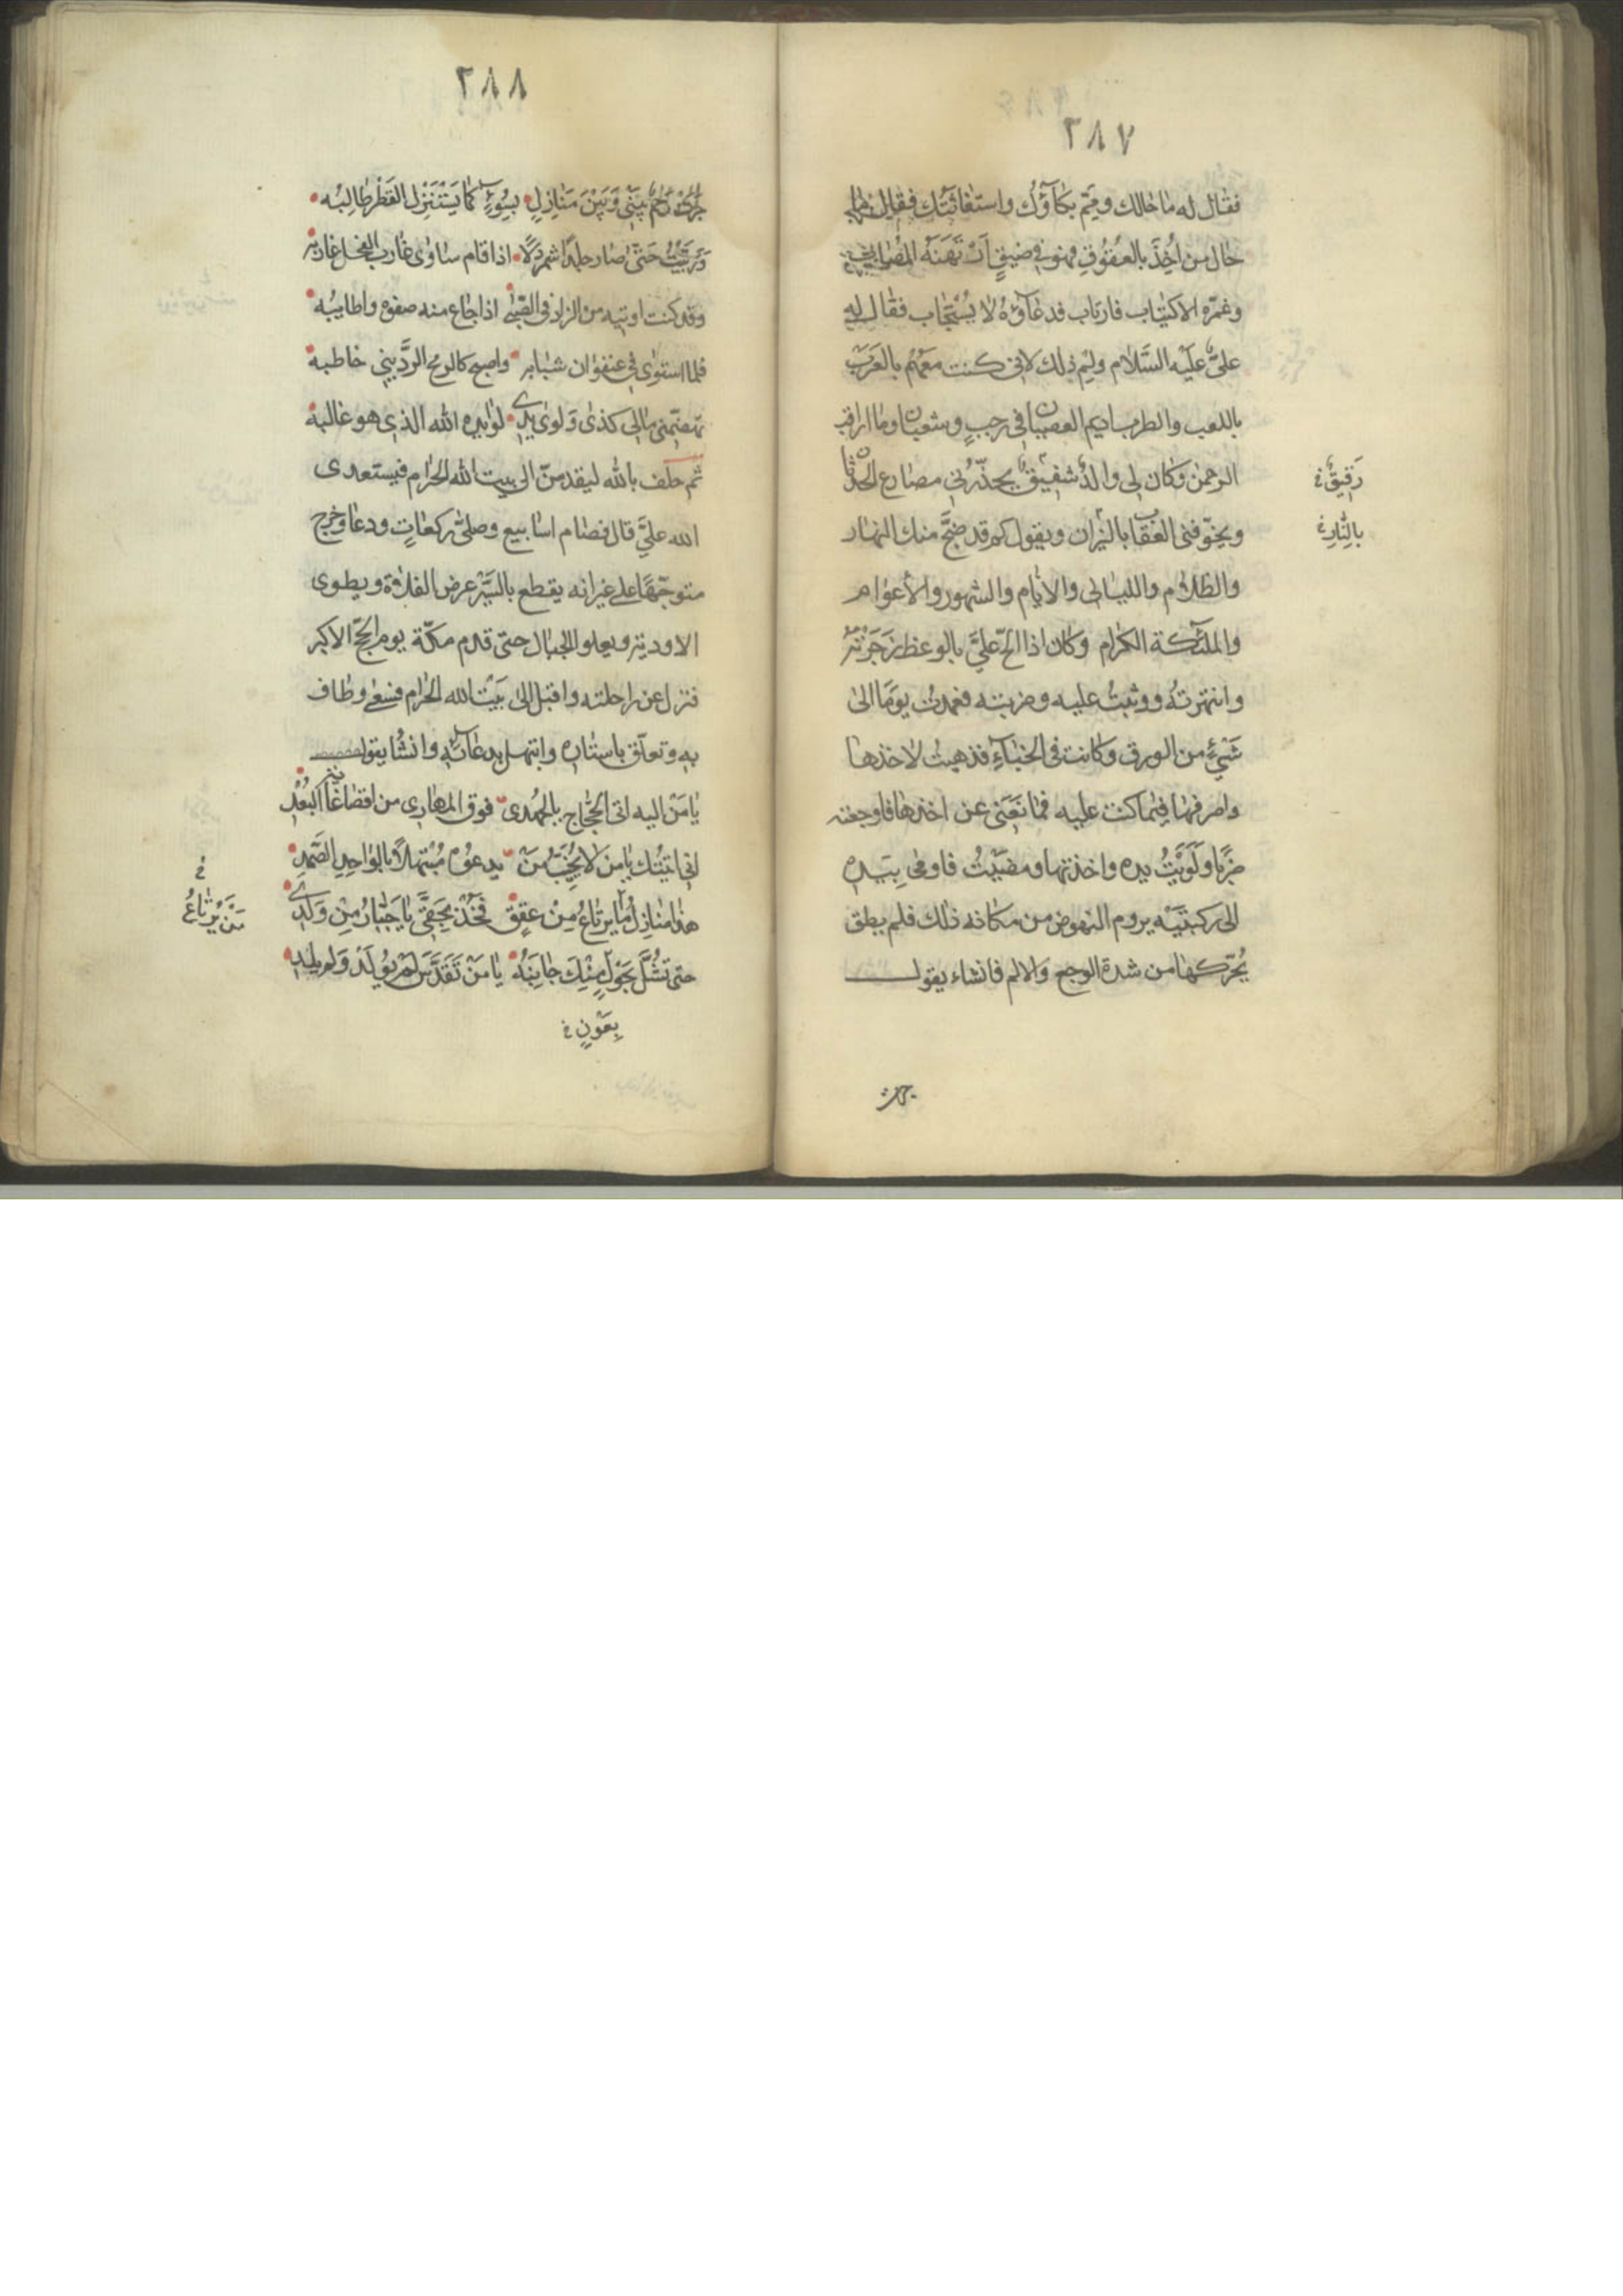 ٢٨٧
فقال له ما حالك وممّ بكاؤُك واستغاثتك فقال ما
حال من اُخِذَ بالعقُوقِ فهو فى ضيقٍ اَرْتَهَنَهُ المصاب
وغمّره الاكتياب فارتاب فدعاؤهُ لا يُسْتجاب فقال له
علىّ علَيْه السَّلام ولِمَ ذلك لانى كنت معَهُم بالعَرَب
باللعب والطرب اديم العصيان فى رجبٍ وشعبان وما اراقب
الرحمن وكان لى والدٌ شفيقٌ يحذّرنى مصارع الحدثان
رَقِيقٌ خ
ويخوّفنى العقاب بالنيران ويقول كم قد ضجَّ منك النهار
بالنّارِ خ
والظلام والليالى والايام والشهور والاعوام
والملئكة الكرام وكان اذا الحّ علىَّ بالوعظ زَجَرْتُهُ
وانتهرتهُ ووثبتُ عليه وضربته فعمدت يومًا الى
شَيْءٍ من الورق وكانت فى الخباءِ فذهبت لاخذها
واصرفها فيما كنت عليه فمانَعَنى عن اخذها فاوجعته
ضربًا ولَوَيْتُ يده واخذتها ومضَيْتُ فاومى بِيَده
الى ركبتَيْه يروم النهوض من مكانه ذلك فلم يطق
يُحرّكها من شدة الوجع والالم فانشاء يقول
جرت
٢٨٨
جَرَتْ رَحِمٌ بَيْنى وَبَيْنَ مَنازِلٍ بسُوءٍ كما يَسْتَنْزِل القَطْرَ طالِبُه
وَرَبَّيْتُ حَتّى صار جلدًا شمردَلًا اذا قام ساوى غارب الفحل غاربه
وقد كنت اوتيه من الزاد فى الصّبى اذا جاع منه صفوه واطايبُه
فلما استوى فى عنفوان شبابه واصبح كالرمح الردّينىِ خاطبه
تهضّمنى مالى كذى وَلوى يدى لوى يده الله الذى هو غالبه
ثم حلف بالله ليقدمنّ الى بيت الله الحرام فيستعدى
الله علىَّ قال فصام اسابيع وصلّى ركعاتٍ ودعا وخرج
متوجّهًا على عيرانه يقطع بالسَّيْر عرض الفلاة ويطوى
الاودية ويعلو الجبال حتى قدم مكّة يوم الحجّ الاكبر
فنزل عن راحلته واقبل الى بَيْت الله الحرام فسعى وطاف
به وتعلّق باستاره وابتهل بدعائه وانشا يقول
يا مَنْ اليه اتى الحُجّاج بالجهدى فوق المهارى من اقصا غاية البُعْدِ
انى اتيتُك يا من لا يُخيّبُ مَنْ يدعوُه مُبْتهلًا بالواحِدِ الصَّمَدِ
هذا منازِلُ ما يرتاعُ مِنْ عققى فَخُذْ بحَقّى يا جَبّارُ مِنْ وَلَدى
خ
مَنْ يُرْتاعُ
حتى تشُلَّ بحَوْلٍ مِنْكَ جانِبَهُ يا مَنْ تَقَدَّسَ لَمْ يُولَدْ وَلم يلدِ
بِعَوْنٍ خ